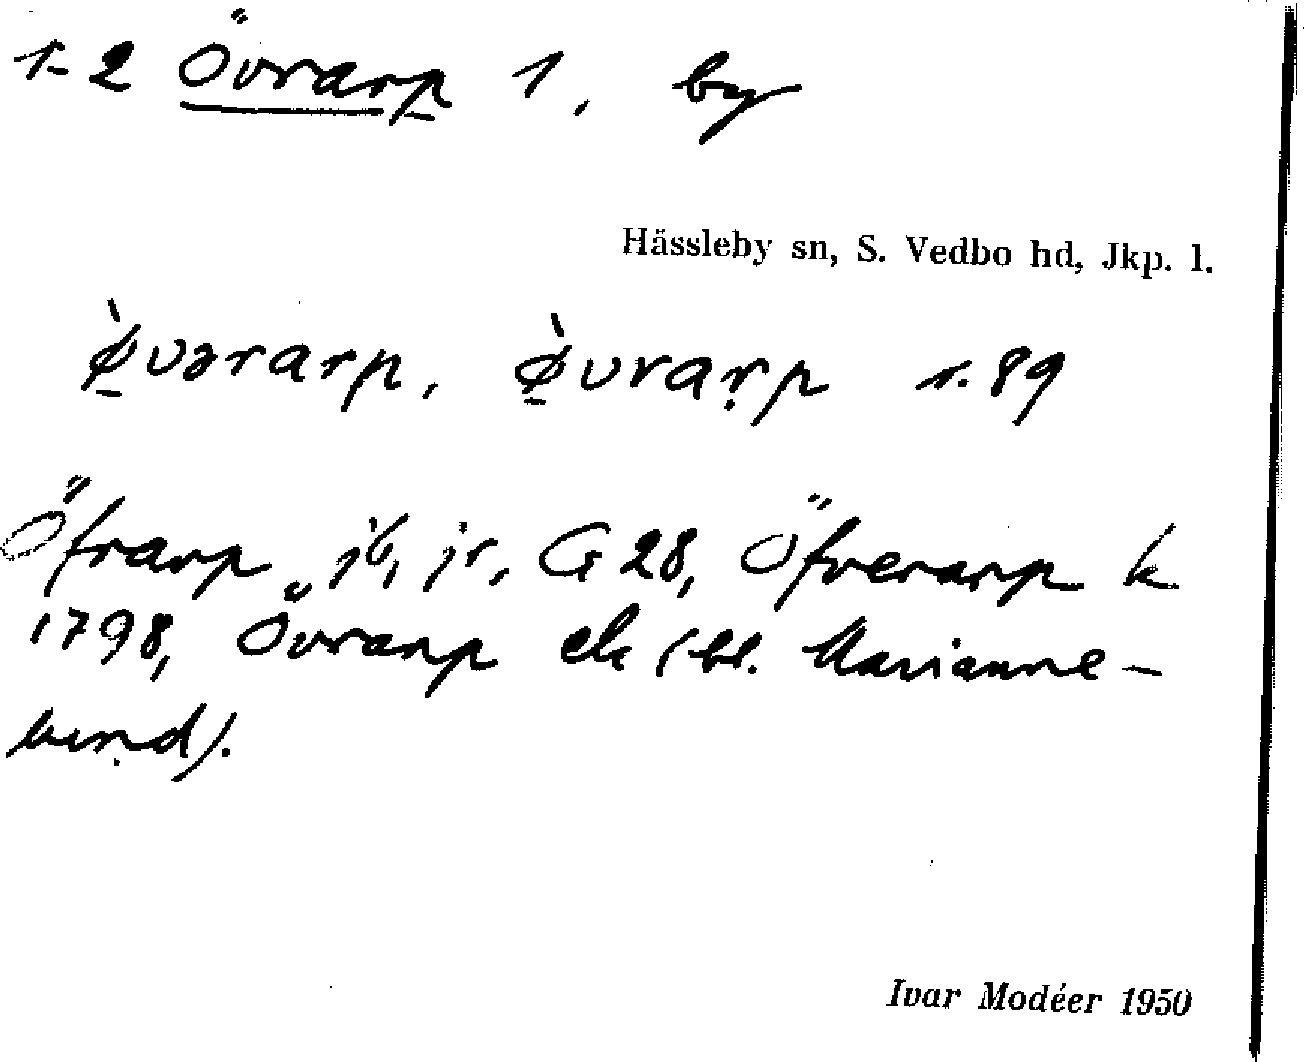 1-2 Övrarp 1, by
Hässleby sn, S. Vedbo hd, Jkp. l.
ø̀vərarp, ø̀vraṛp r. 89
Öfrarp jb, jr, G 28, Öfverarp k
1798, Övrarp ek (bl. Marianne-
lund).
Ivar Modéer 1950